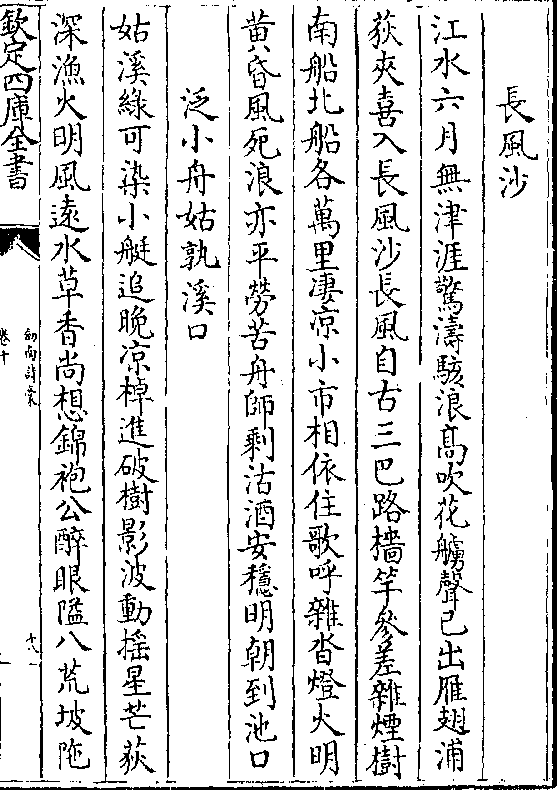 長風沙
江水六月無津涯驚濤駭浪高吹花艣聲已出雁翅浦
荻夾喜入長風沙長風自古三巴路檣竿參差雜煙樹
南船北船各萬里凄凉小市相依住歌呼雜沓燈火明
黄昏風死浪亦平勞苦舟師剩沽酒安穩明朝到池口
泛小舟姑孰溪口
姑溪綠可染小艇追晚凉棹進破樹影波動揺星芒荻
深漁火明風遠水草香尚想錦袍公醉眼隘八荒坡陁
欽定四庫全書
劍南詩藁
卷十
十八